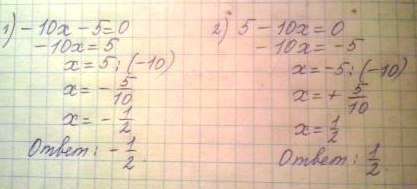 1) -10x - 5 = 0
-10x = 5
x = 5 : (-10)
x = - 5/10
x = - 1/2
Ответ: - 1/2
2) 5 - 10x = 0
- 10x = -5
x = -5 : (-10)
x = + 5/10
x = 1/2
Ответ: 1/2.